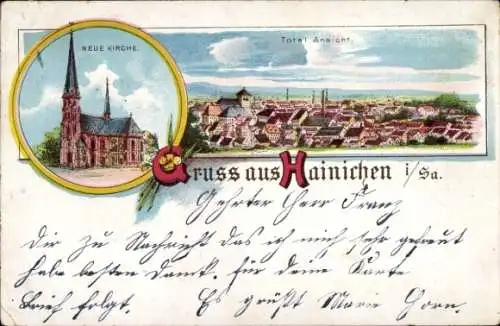 NEUE KIRCHE.
Total Ansicht.
Gruss aus Hainichen i/Sa.
Geehrter Herr Franz
Dir zu Nachricht das ich mich sehr gefreut
habe besten Dank. für deine Karte
Brief folgt. Es grüßt Marie Horn.